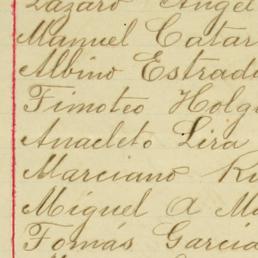 Lázaro Angel
Manuel Catar
Albino Estrad
Timoteo Holg
Anacleto Lira
Marciano
Miguel A M
Tomás Garcia